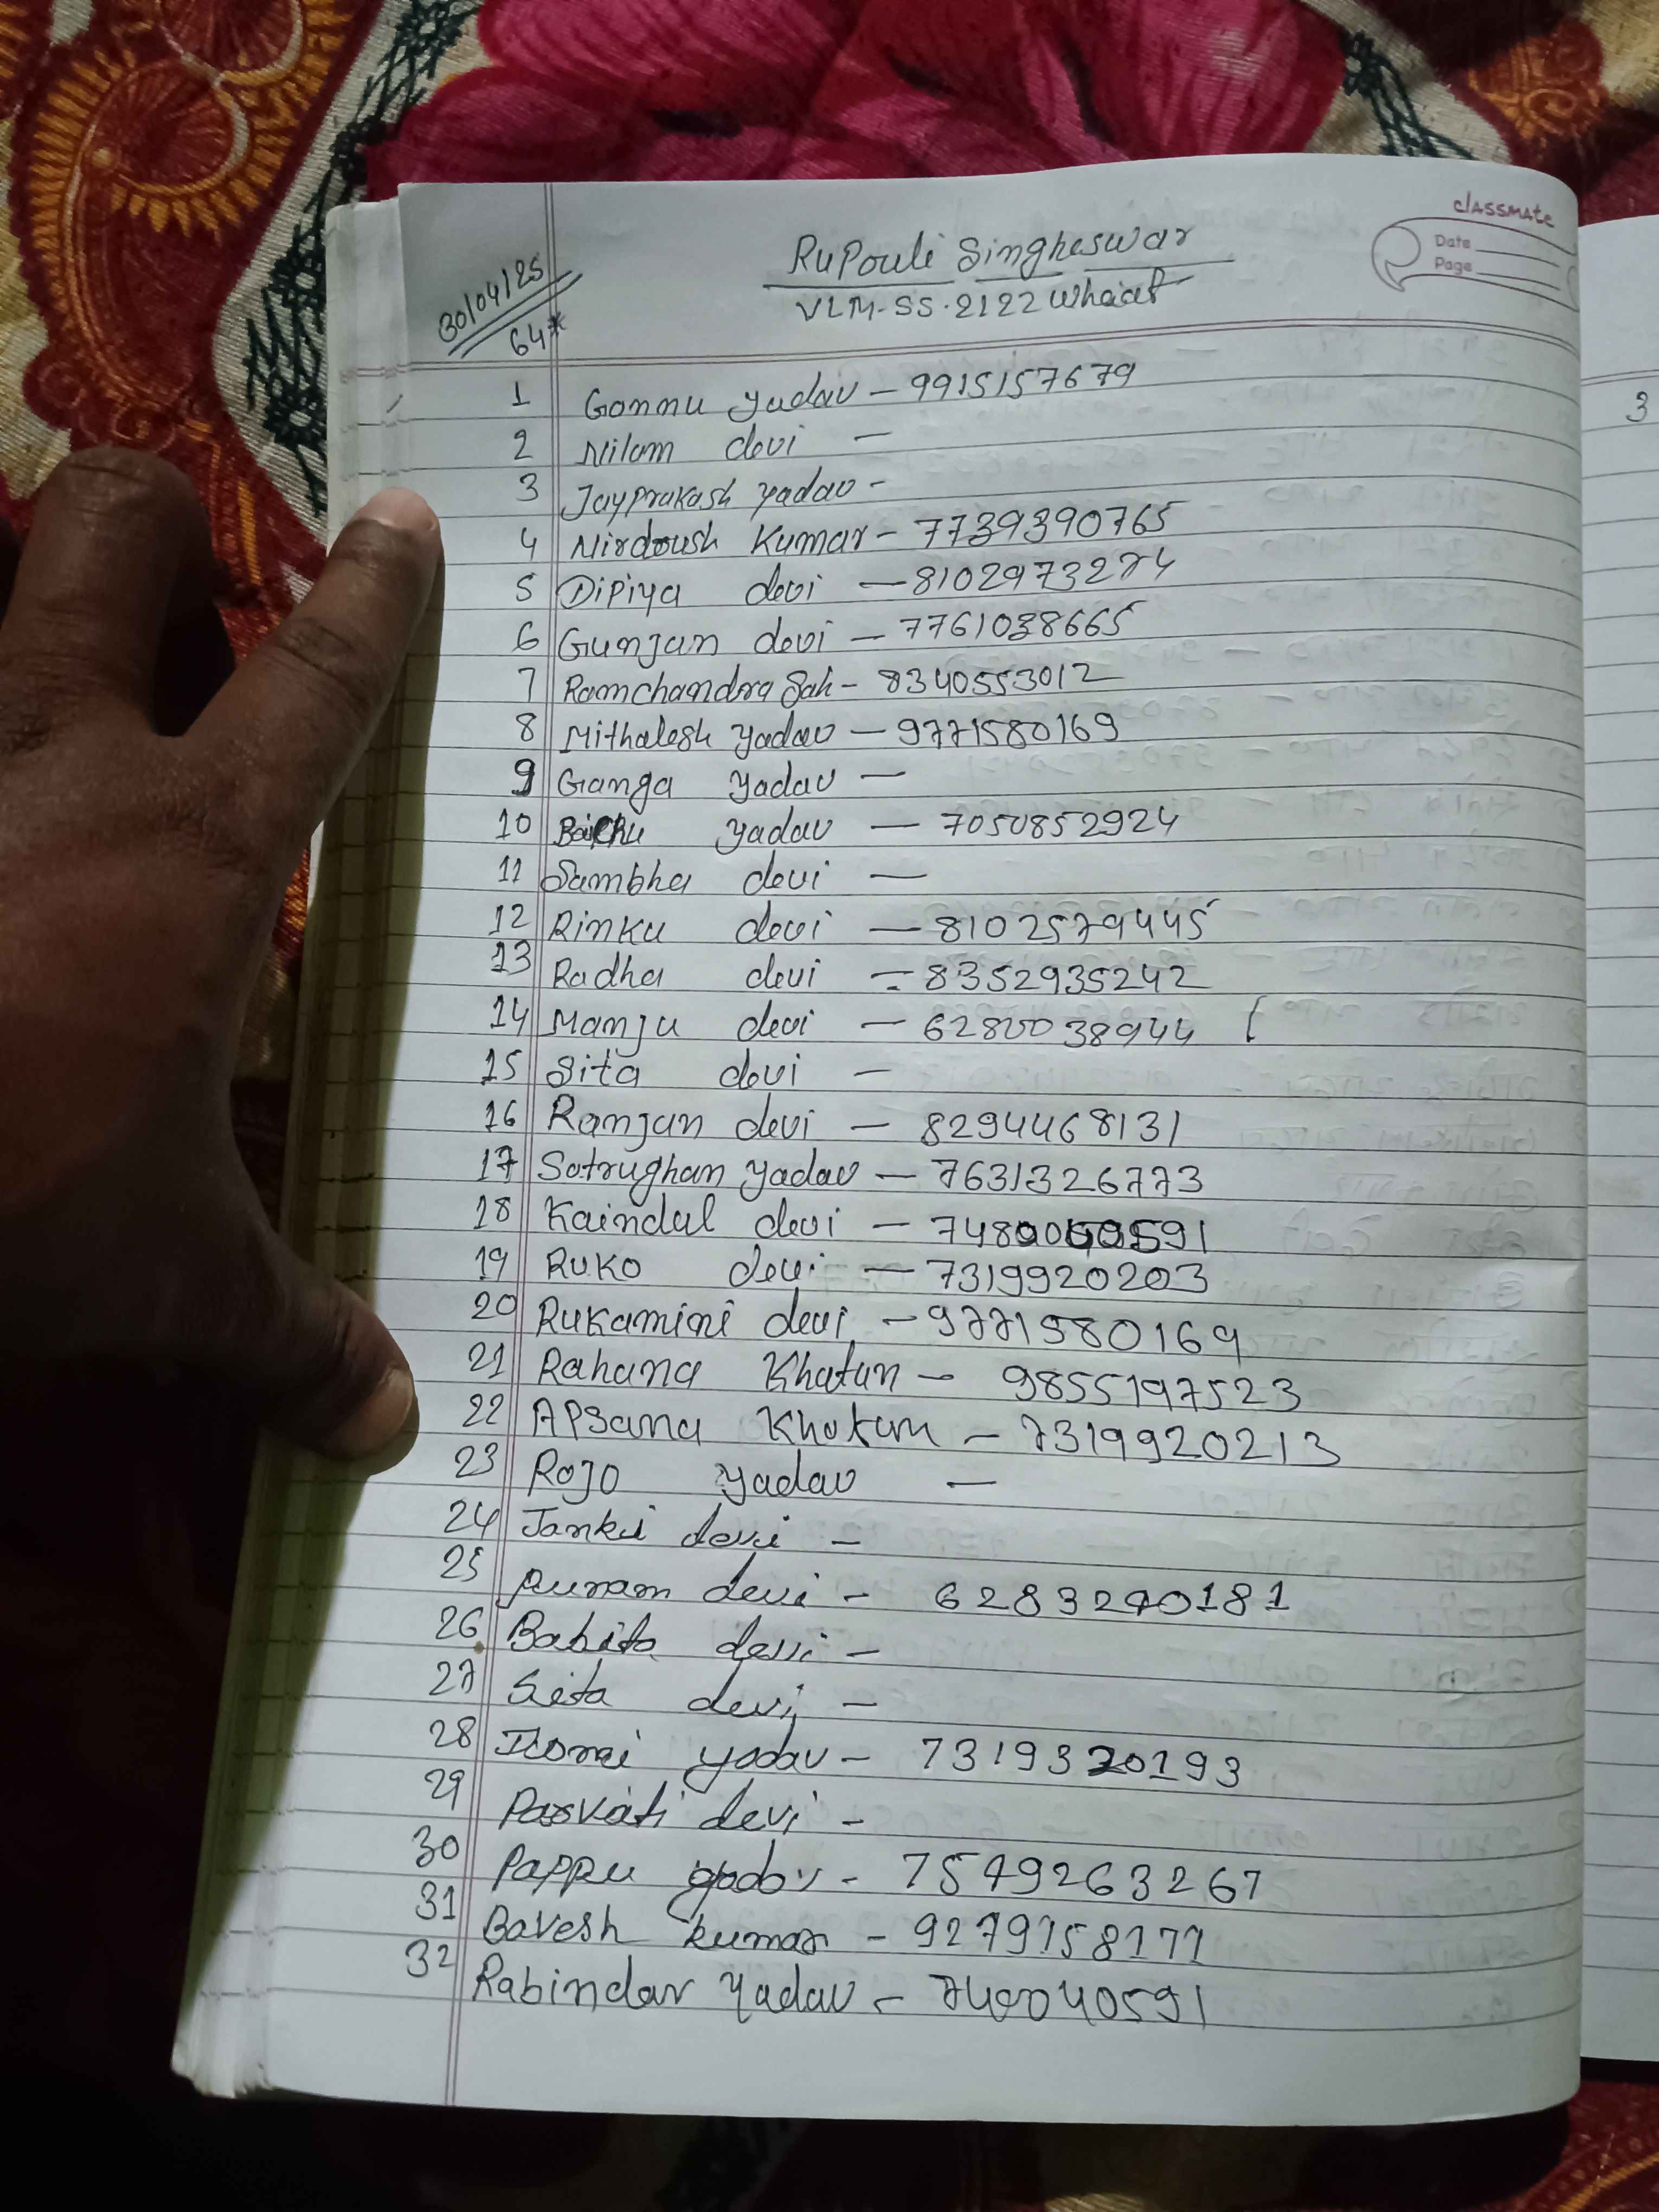 classmate
Date
Page
30/04/25
64*
RuPouli Singheswar
VLM-SS.2122 Wheat
1 Gonnu yadav - 9915157679
2 Nilam devi -
3 JayPrakash yadav -
4 Nirdoush Kumar - 7739390765
5 Dipiya devi - 8102973274
6 Gunjan devi - 7761038665
7 Ramchandra Sah - 8340553012
8 Mithalesh yadav - 9771580169
9 Ganga yadav -
10 yadav - 7050852924
11 Sambha devi -
12 Rinku devi - 8102579445
13 Radha devi = 8352935242
14 Manju devi - 6280038944 (
15 Sita devi -
16 Ranjan devi - 8294468131
17 Satrughan yadav - 7631326773
18 Kaindal devi -
19 Ruko devi - 7319920203
20 Rukamini devi - 9771580169
21 Rahana Khatun - 9855197523
22 APSana Khatun - 7319920213
23 Rojo yadav -
24 Janki devi -
25 punam devi - 6283290181
26 Babita devi -
27 Sita devi -
28 yadav - 7319320193
29 Parvati devi -
30 Pappu yadav - 7549263267
31 Bavesh kumar - 9279158171
32 Rabindar Yadav - 740040591
3